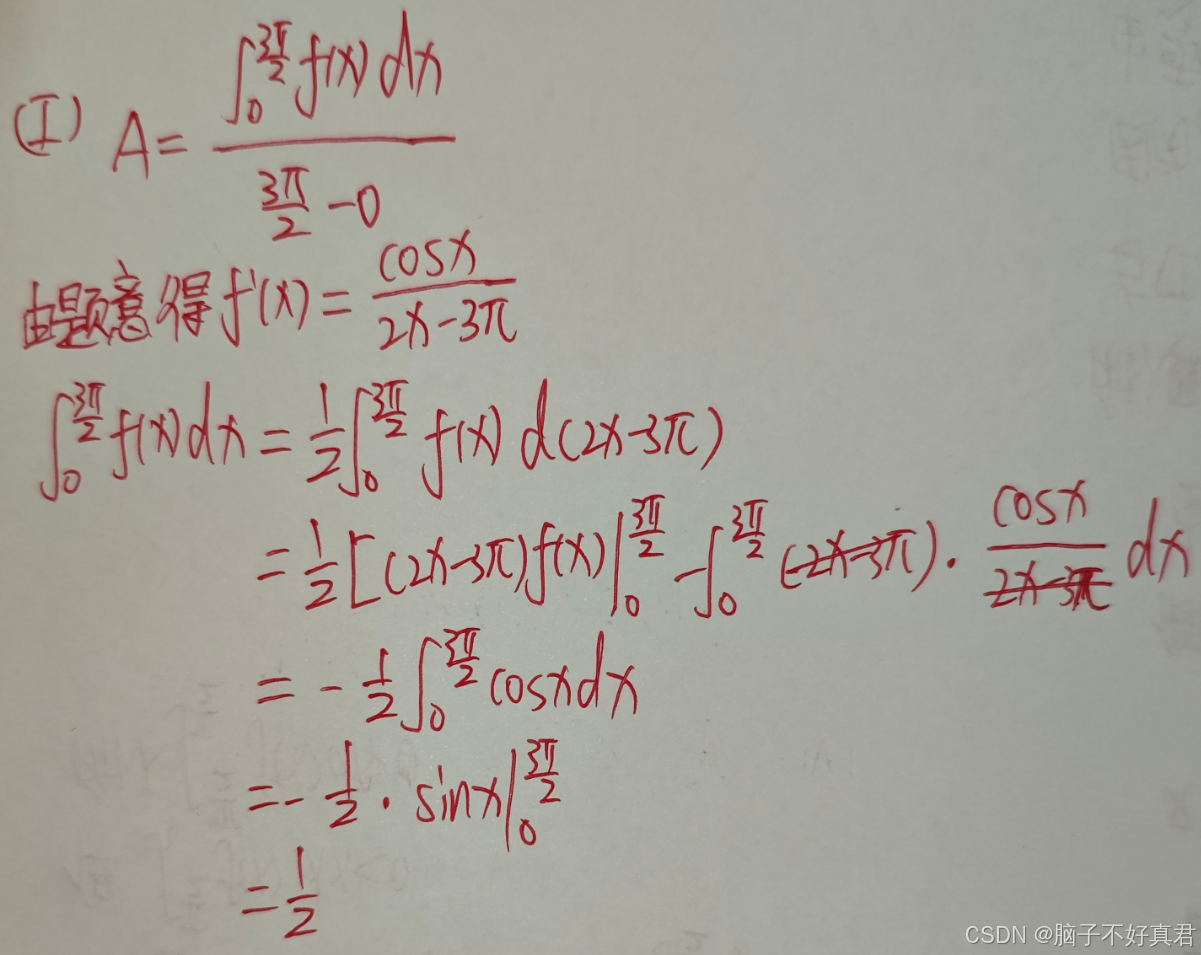 (I) A = \frac{\int_0^{\frac{3π}{2}} f(x) dx}{\frac{3π}{2} - 0}
由题意得 f'(x) = \frac{cosx}{2x-3π}
\int_0^{\frac{3π}{2}} f(x) dx = \frac{1}{2} \int_0^{\frac{3π}{2}} f(x) d(2x-3π)
= \frac{1}{2} [ (2x-3π) f(x) |_0^{\frac{3π}{2}} - \int_0^{\frac{3π}{2}} (2x-3π) · \frac{cosx}{2x-3π} dx
= - \frac{1}{2} \int_0^{\frac{3π}{2}} cosx dx
= - \frac{1}{2} · sinx |_0^{\frac{3π}{2}}
= \frac{1}{2}
CSDN @脑子不好真君